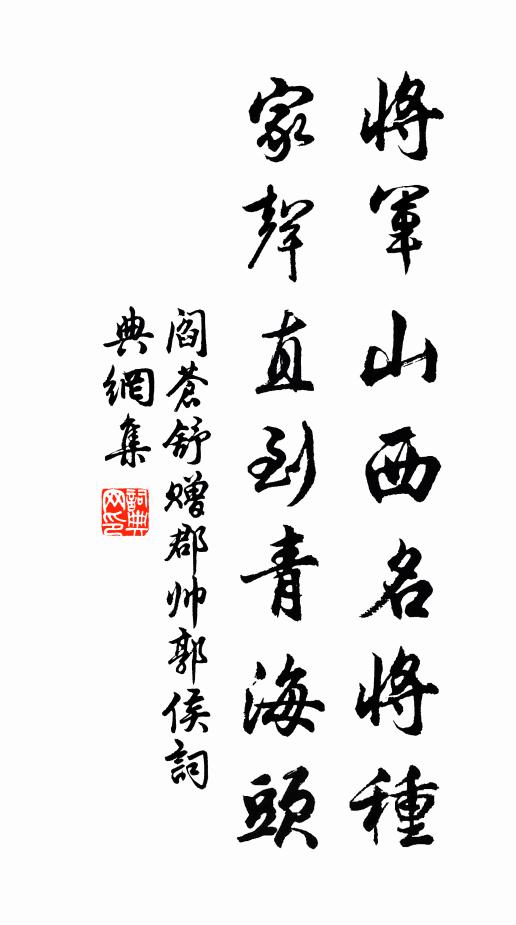 將軍山西名將種
家聲直到青海頭
閻蒼舒贈郡帥郭侯詞
典網集
詞典網印